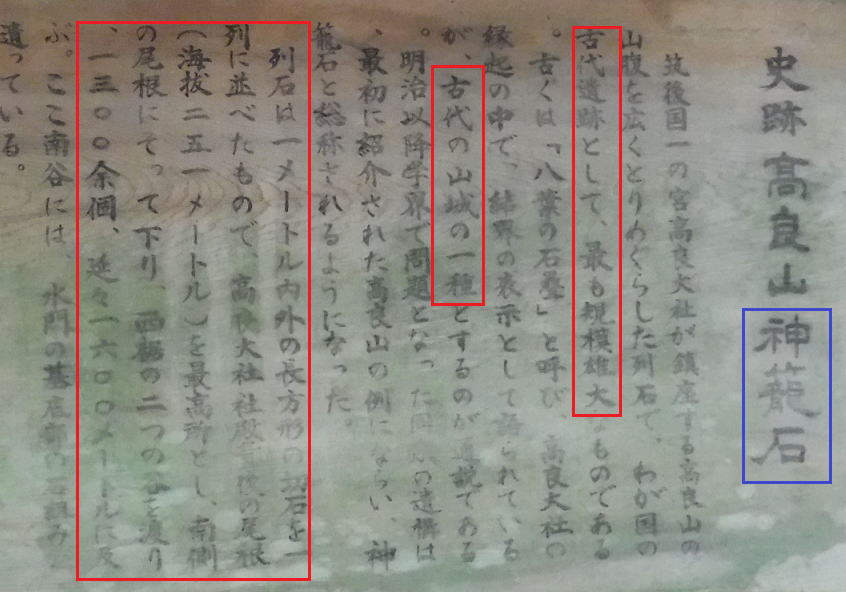 史跡高良山神籠石
筑後国一の宮高良大社が鎮座する高良山の
山腹を広くとりめぐらした列石で、わが国の
古代遺跡として、最も規模雄大なものである
。古くは「八葉の石畳」と呼び、高良大社の
縁起の中で、結界の表示として語られている
が、古代の山城の一種とするのが通説である
。明治以降学界で問題となった同の遺構は
、最初に紹介された高良山の例にならい、神
籠石と総称されるようになった。
列石は一メートル内外の長方形の切石を一
列に並べたもので、高良大社社殿背後の尾根
(海抜二五一メートル)を最高所とし、南側
の尾根にそって下り、西裾の二つの谷を渡り
、一三〇〇余個、延々一六〇〇メートルに及
ぶ。ここ南谷には、水門の基底部の石組み
遺っている。